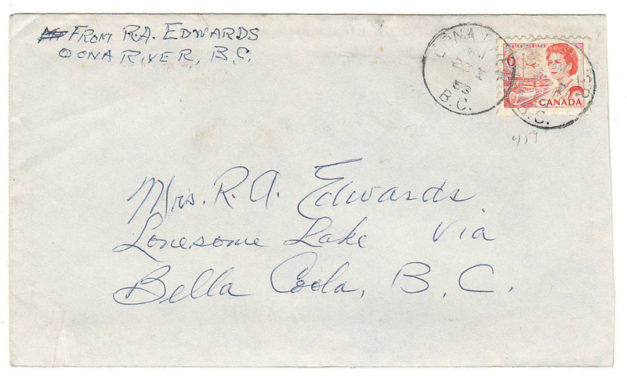 FROM R.A. EDWARDS
OONA RIVER, B.C.
OONA
B.C.
6
POSTES POSTAGE
CANADA
B.C.
Mrs. R. A. Edwards
Lonesome Lake via
Bella Coola, B. C.